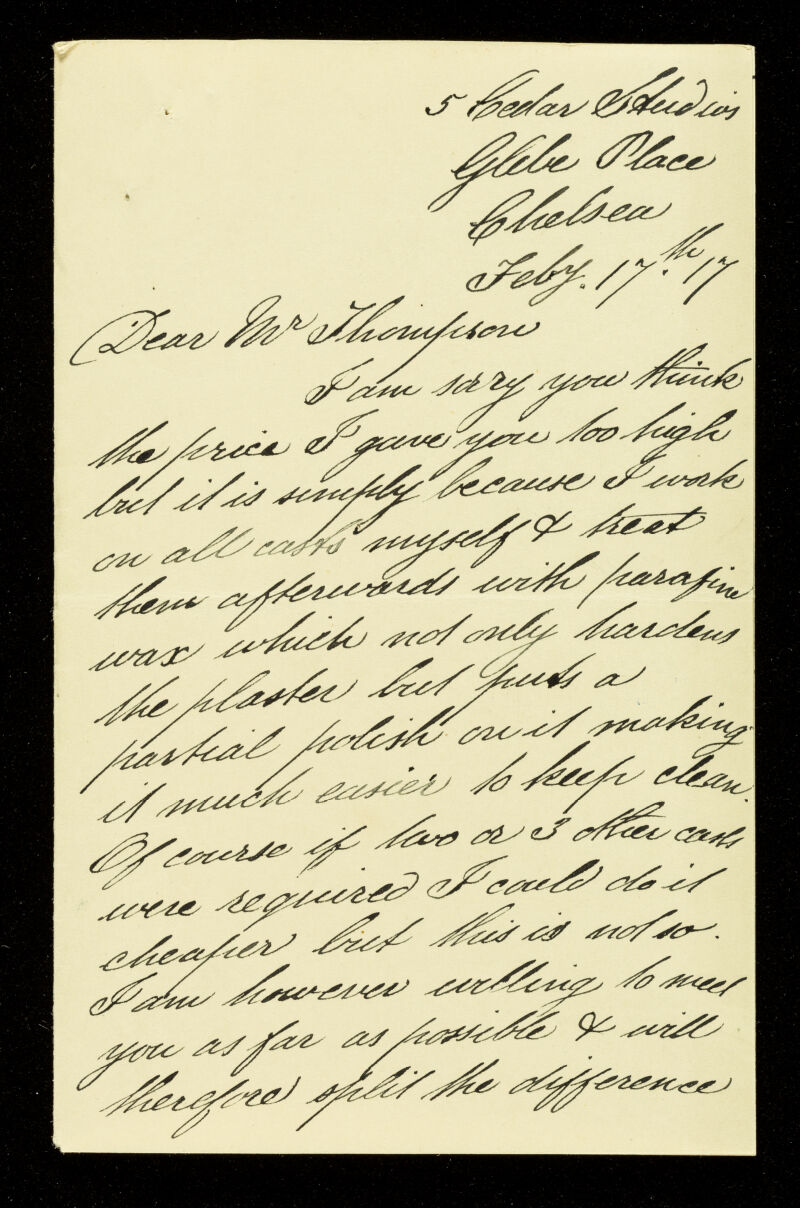 5 Cedar Studios
Glebe Place
Chelsea
Feby. 17th 17
Dear Mr Thompson
I am sorry you think
the price I gave you too high
but it is simply because I work
on all casts myself & treat
them afterwards with parafine
wax which not only hardens
the plaster but puts a
partial polish on it making
it much easier to keep clean.
Of course if two or 3 other casts
were required I could do it
cheaper but this is not so.
I am however willing to meet
you as far as possible & will
therefore split the difference